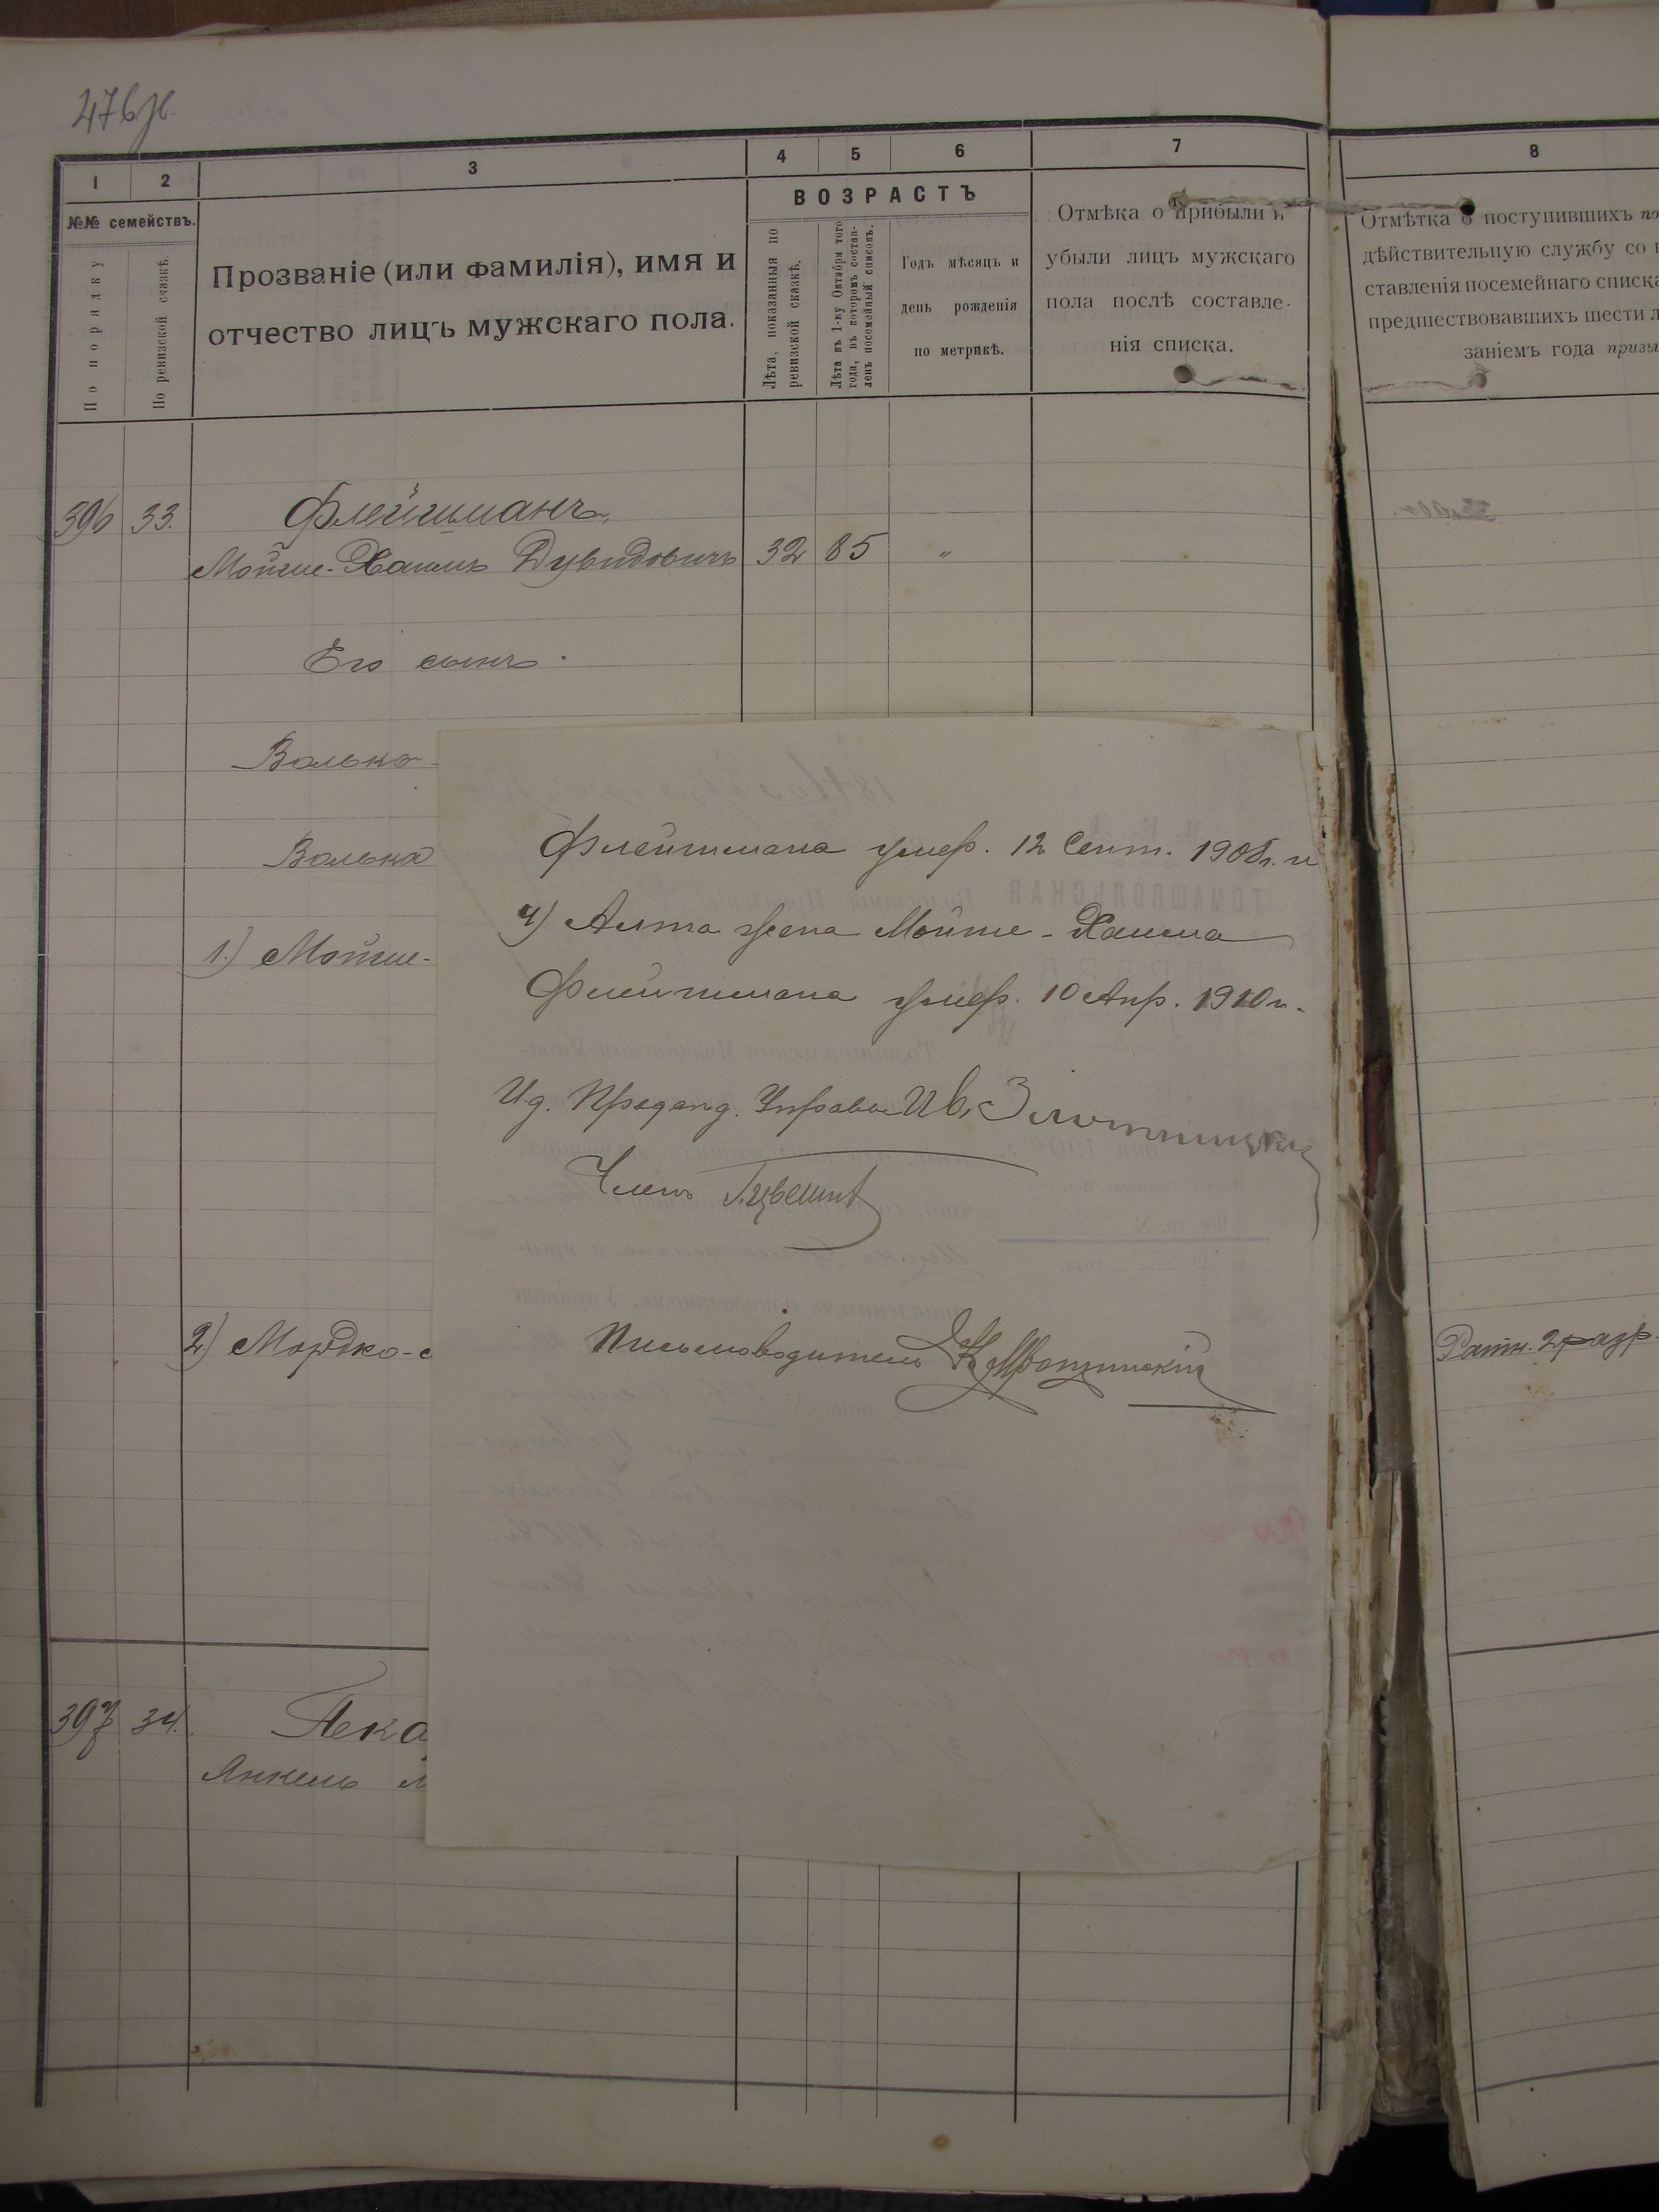 476
1
2
3
4
5
6
7
8
№№ семействъ.
По порядку
По ревизской сказкѣ.
Прозваніе (или фамилія), имя и
отчество лицъ мужскаго пола.
ВОЗРАСТЪ
Лѣта, показанныя по
ревизской сказкѣ.
Лѣта къ 1-му Октября того
года, въ которомъ состав-
ленъ посемейный списокъ.
Годъ мѣсяцъ и
день рожденія
по метрикѣ.
Отмѣка о прибыли и
убыли лицъ мужскаго
пола послѣ составле-
нія списка.
Отмѣтка о поступившихъ по
дѣйствительную службу со в
ставленія посемейнаго списка
предшествовавшихъ шести л
заніемъ года призы
396 33. Флейшманъ
Мойше-Хаимъ Дувидовичъ 32 85 "
Его сынъ
Волько-
Волька
1.) Мойше-
2) Мордко-
Ратн. 2 разр.
397 34. Пека
Янкель
Флейшмана умер. 12 Сент. 1908г. и
4) Алта жена Мойше-Хаима
Флейшмана умер. 10 Апр. 1910 г.
И.д. Председ. Управы Ив.
Членъ
Письмоводитель
ТОМАШПОЛЬСКАЯ